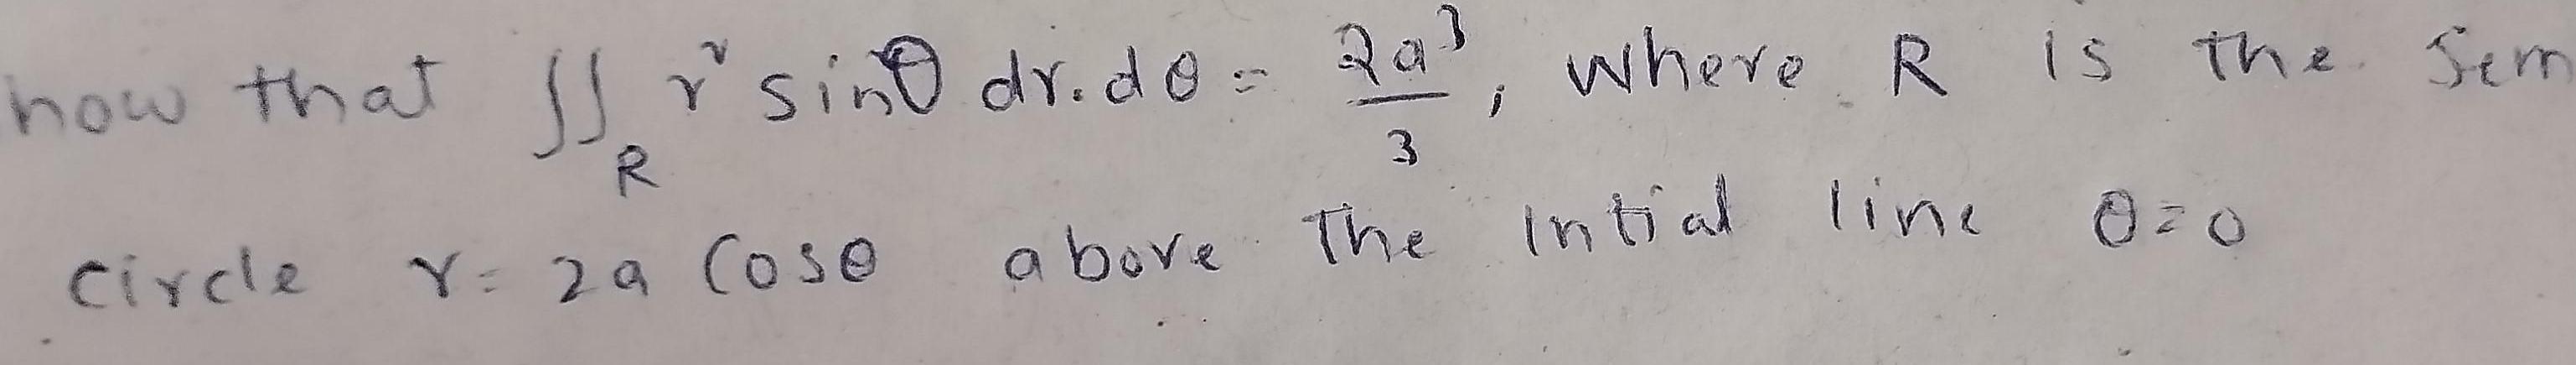 how that ∬_R r² sinθ dr.dθ = 2a³/3, where R is the Sem
circle r = 2a Cosθ above The Intial line θ=0